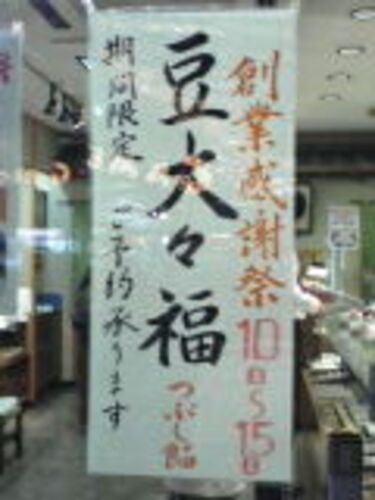 創業感謝祭10日〜15日
豆大々福
つぶし餡
期間限定 ご予約承ります